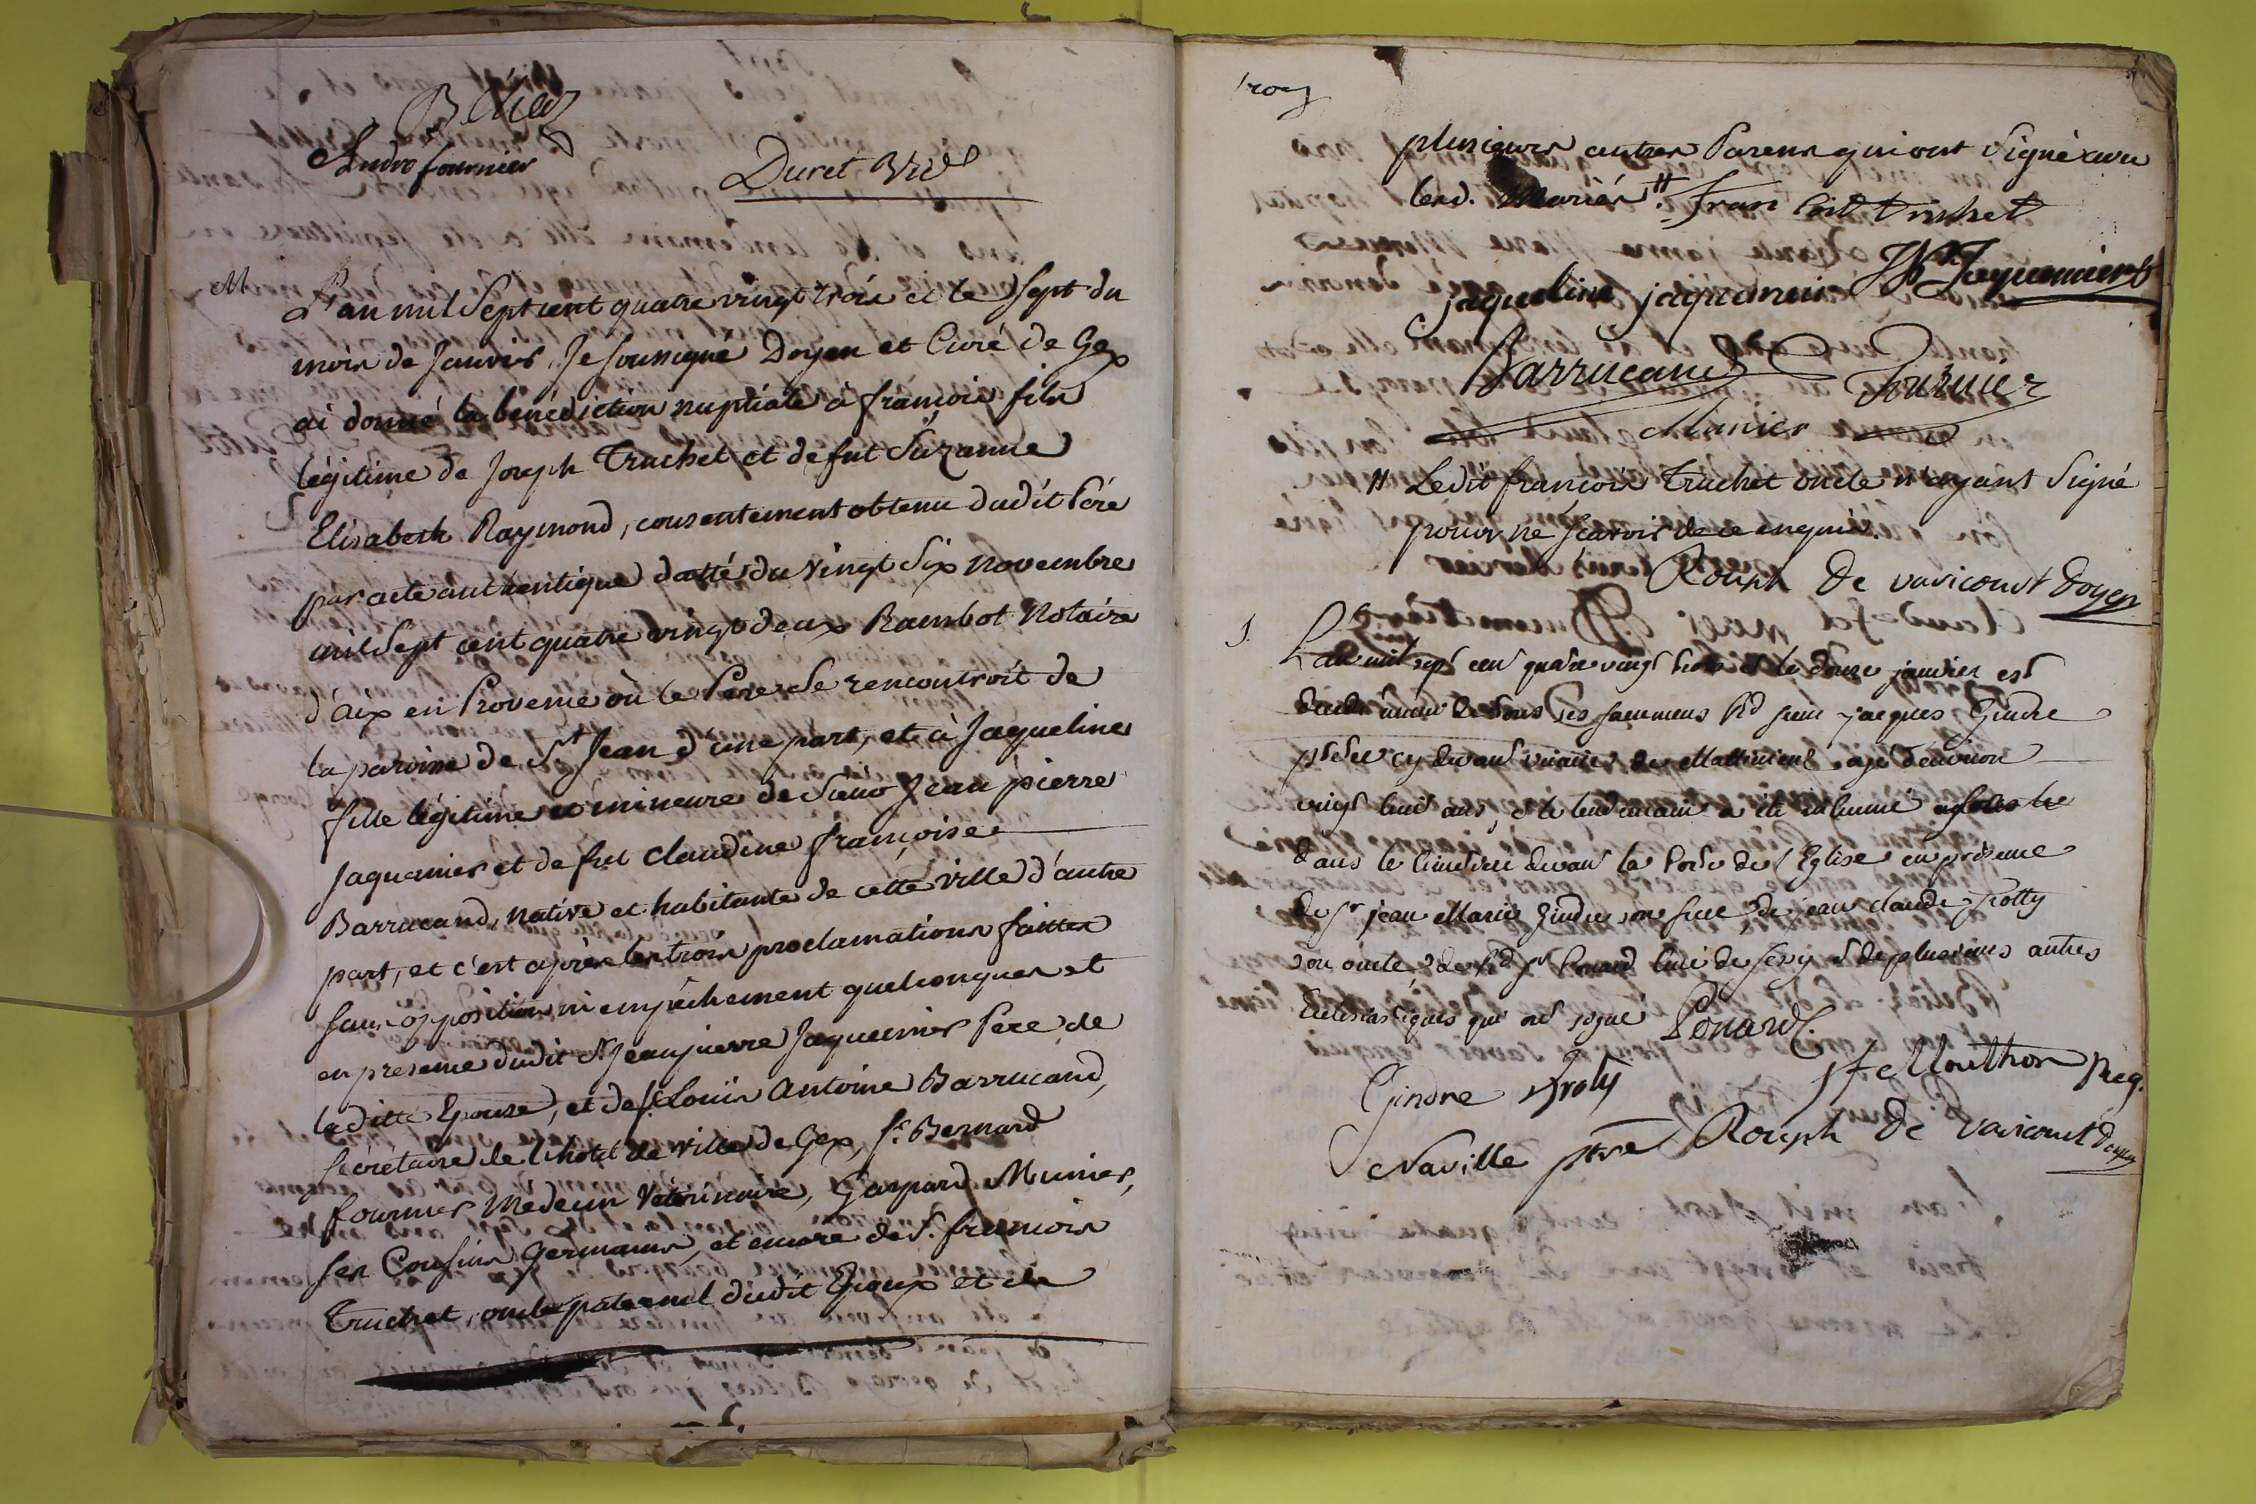 Andro fournier
Duret Vic
M
L'an mil Sept cent quatre vingt trois et le Sept du
mois de Janvier, Je soussigné Doyen et Curé de Gex
ai donné la bénédiction nuptiale à françois fils
légitime de Joseph Truchet et de fut Suzanne
Elisabeth Raymond, consentement obtenu dudit Pére
par acte authentique datté du Vingt Six Novembre
mil Sept cent quatre vingt deux Rambot Notaire
d'Aix en Provence où le Pere Se rencontroit de
la paroisse de St Jean d'une part, et à Jaqueline
fille légitime et mineure de Sieur Jean pierre
Jaquemier et de fut Claudine françoise
Barrucand, native et habitante de cette ville d'autre
part, et c'est après les trois proclamations faittes
sans opposition ni empêchement quelconques et
en presence dudit Sr Jean pierre Jaquemier Pere de
la ditte Epouse, et de Sr Louis Antoine Barrucand,
Sécretaire de l'hotel de ville de Gex, Sr Bernard
fournier Medecin Vétérinaire, Gaspard Munier,
ses Cousins germains, et encore de S. françois
Truchet, oncle paternel dudit Epoux et de
trois
plusieurs autres Parens qui ont Signé avec
lesd. Mariés. # fran Coist truhet
jaqueline jaquemier JP Jaquemier
Barrucand Fournier
Munier
# Ledit françois Truchet oncle n'ayant Signé
pour ne Scavoir de ce enquis.
Rouph De varicourt doyen
S.
L'an mil sept cent quatre vingt trois et le douze janvier est
décédé muni de tous ses sacremens Rd sieur jacques Gindre
prêtre cy devant vicaire de Mattinient agé d'environ
vingt huit ans, et le lendemain a été inhumé
dans le Cimetiere devant la Porte de l'Eglise en présence
de Sr jean Marie Gindre son frere, de jean claude Trotty
son oncle, de Rd Sr Ponard Curé de Sessy et de plusieurs autres
Ecclesiastiques qui ont signé Ponard C.
Gindre Mouthon
Naville ptre Rouph De varicourt Doyen